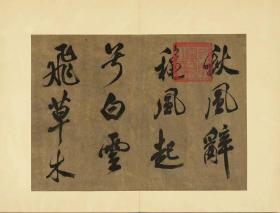 秋風辭
穐風起
兮白雲
飛草木